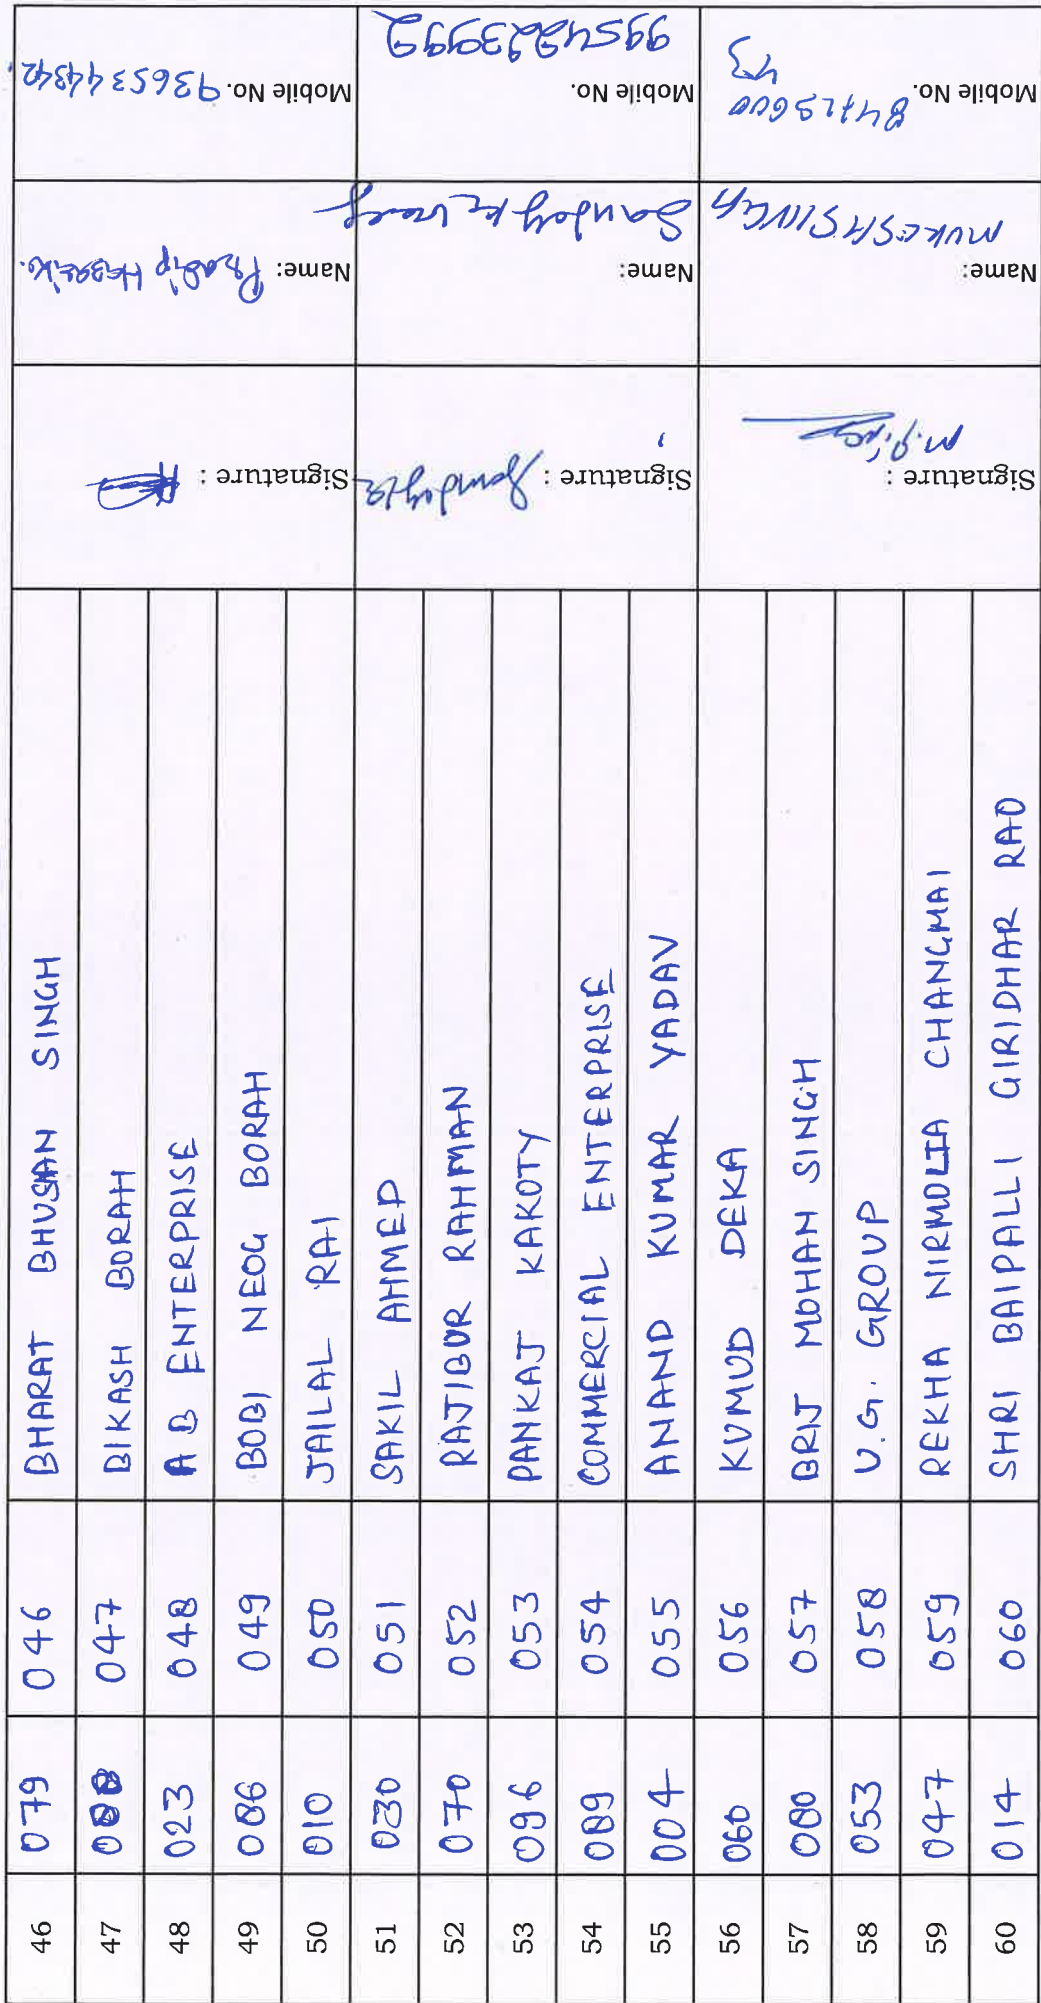 46 079 046 BHARAT BHUSAN SINGH
47 088 047 BIKASH BORAH
48 023 048 A B ENTERPRISE
49 086 049 BOBI NEOG BORAH
50 010 050 JAILAL RAI
51 030 051 SAKIL AHMED
52 070 052 RAJIBUR RAHMAN
53 096 053 PANKAJ KAKOTY
54 089 054 COMMERCIAL ENTERPRISE
55 004 055 ANAND KUMAR YADAV
56 060 056 KUMUD DEKA
57 080 057 BRIJ MOHAN SINGH
58 053 058 U.G. GROUP
59 047 059 REKHA NIRMOLIA CHANGMAI
60 014 060 SHRI BAIPALLI GIRIDHAR RAO
Signature :
Name: Pradip Hazarika.
Mobile No. 9365344342
Signature :
Name: Sanjoy
Mobile No.
9954223992
Signature :
M. Sing
Name:
MUKESH SINGH
Mobile No.
84725600
43